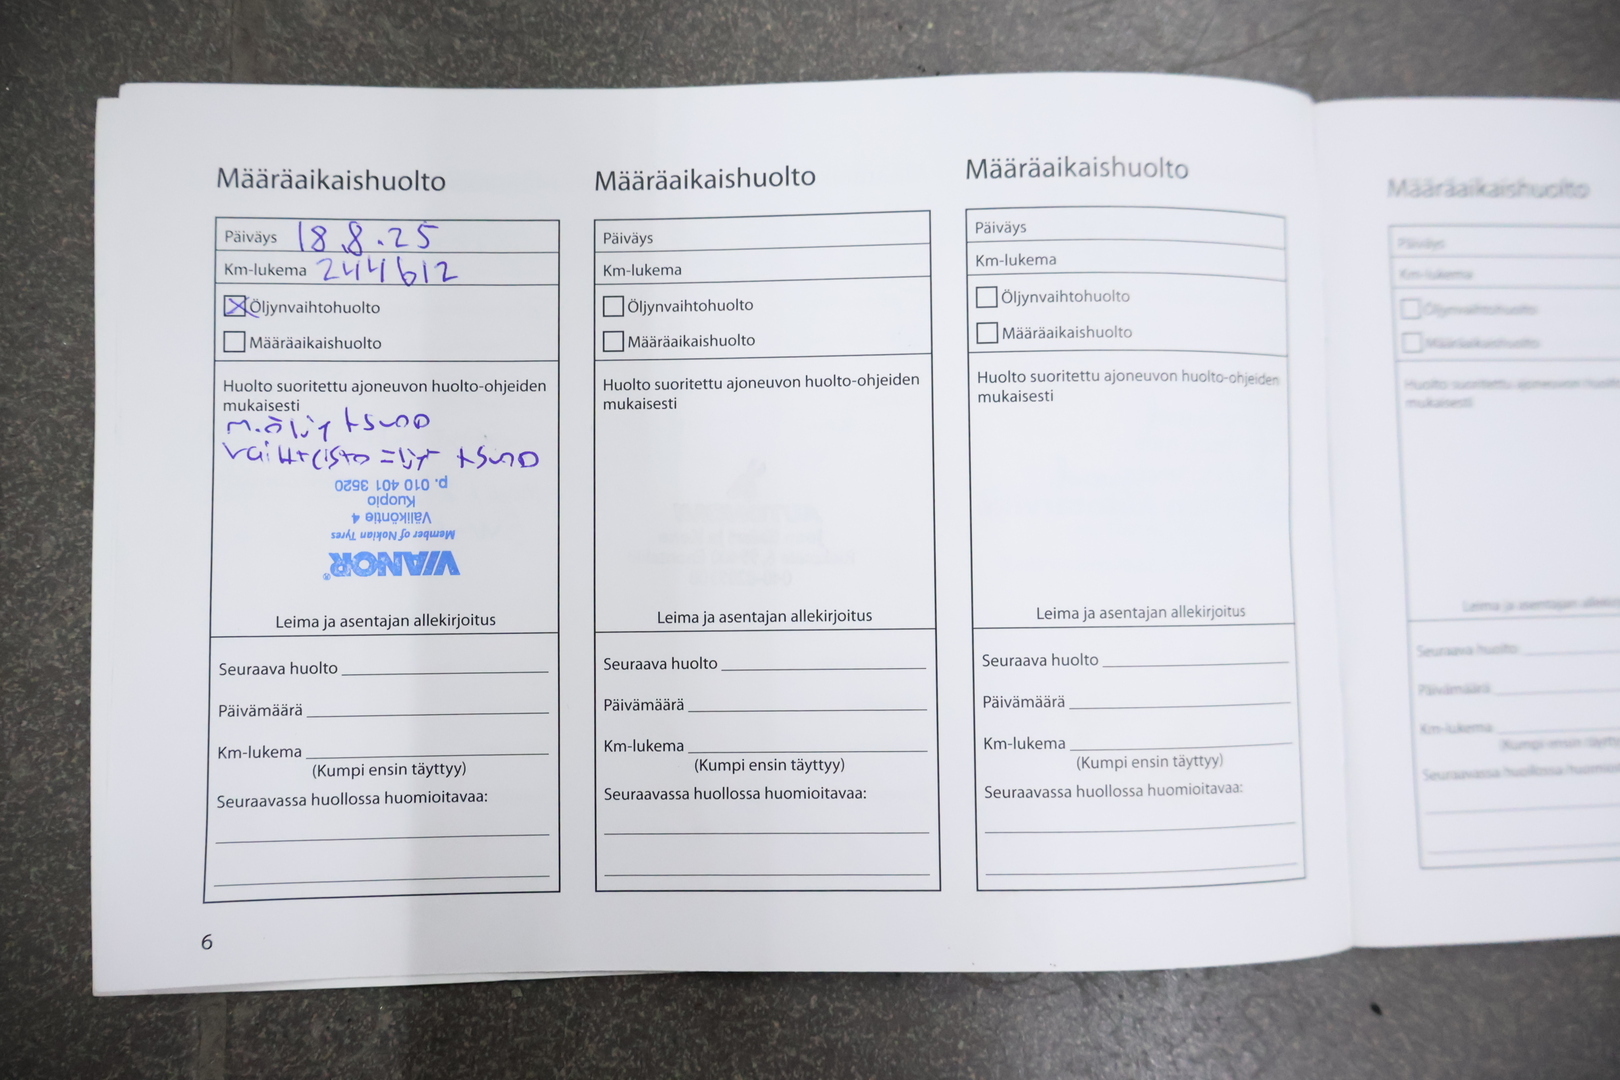 Määräaikaishuolto
Päiväys 18.8.25
Km-lukema 244612
Öljynvaihtohuolto
Määräaikaishuolto
Huolto suoritettu ajoneuvon huolto-ohjeiden
mukaisesti
p. 010 401 3520
Kuopio
Väliköntie 4
Member of Nokian Tyres
VIANOR®
Leima ja asentajan allekirjoitus
Seuraava huolto
Päivämäärä
Km-lukema
(Kumpi ensin täyttyy)
Seuraavassa huollossa huomioitavaa:
6
Määräaikaishuolto
Päiväys
Km-lukema
Öljynvaihtohuolto
Määräaikaishuolto
Huolto suoritettu ajoneuvon huolto-ohjeiden
mukaisesti
Leima ja asentajan allekirjoitus
Seuraava huolto
Päivämäärä
Km-lukema
(Kumpi ensin täyttyy)
Seuraavassa huollossa huomioitavaa:
Määräaikaishuolto
Päiväys
Km-lukema
Öljynvaihtohuolto
Määräaikaishuolto
Huolto suoritettu ajoneuvon huolto-ohjeiden
mukaisesti
Leima ja asentajan allekirjoitus
Seuraava huolto
Päivämäärä
Km-lukema
(Kumpi ensin täyttyy)
Seuraavassa huollossa huomioitavaa:
Määräaikaishuolto
Päiväys
Km-lukema
Öljynvaihtohuolto
Määräaikaishuolto
Huolto suoritettu ajoneuvon
mukaisesti
Leima ja asentajan
Seuraava huolto
Päivämäärä
Km-lukema
(Kumpi ensin
Seuraavassa huollossa